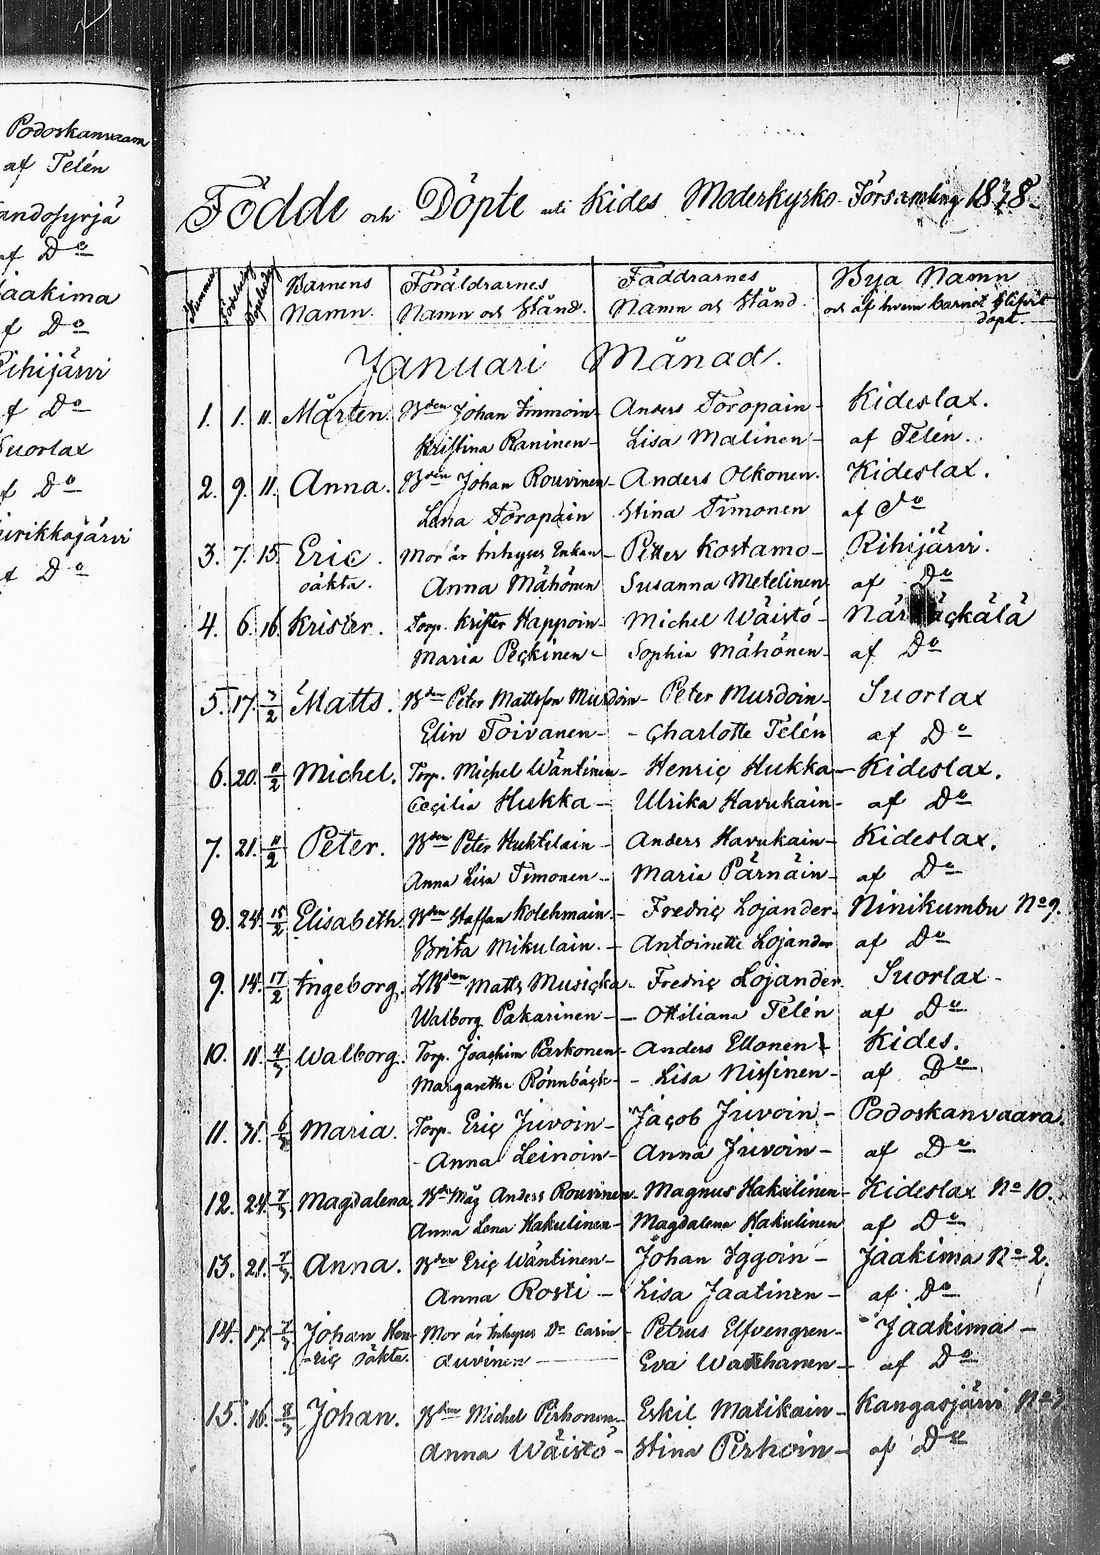 Podoskanvaara
af Telén
af Do
Jaakima
af Do
Rihijärvi
af Do
Suorlax
af Do
af Do
Födde och Döpte uti Kides Moderkyrko-Församling 1838.
Nummer Födelsedag Dopelsedag Barnens Namn. Föräldrarnes Namn och Stånd. Faddrarnes Namn och Stånd. Byja Namn och af hvem barnet blifvit döpt.
Januari Månad.
1. 1. 11. Mårten. Bden Johan Immoin- Anders Toropain- Kideslax.
Kristina Raninen- Lisa Malinen- af Telén.
2. 9. 11. Anna. Bden Johan Rouvinen- Anders Olkonen. Kideslax.
Lena Toropain Stina Timonen af Do
3. 7. 15. Eric Mor är Inhyses Enkan- Petter Kostamo- Rihijärvi.
oäkta. Anna Mähönen Susanna Metelinen af Do
4. 6. 16. Krister. Torp. Krister Happoin- Michel Wäistö-
Maria Peckinen- Sophia Mähönen- af Do
5. 17. 2/2 Matts. Bden Peter Mattsson Murdoin- Peter Murdoin- Suorlax
Elin Toivanen- - Charlotte Telén af Do
6. 20. 11/2 Michel. Torp. Michel Wäntinen- Henric Hukka- Kideslax.
Cecilia Hukka- Ulrika Havukain- af Do
7. 21. 11/2 Peter. Bden Peter Huktilain- Anders Havukain- Kideslax.
Anna Lisa Timonen- Maria Pärnäin- af Do
8. 24. 15/2 Elisabeth. Bden Staffan Kolehmain- Fredric Lojander- Ninikumbu No 9.
Brita Mikulain.- Antoinette Lojander af Do
9. 14. 17/2 Ingeborg. Matts Musicka- Fredric Lojander Suorlax-
Walborg Pakarinen- - Ottiliana Telén af Do
10. 11. 4/3 Walborg. Torp. Joachim Parkonen- Anders Ellonen Kides.
Margaretha Rönnbäck- - Lisa Nissinen- af Do
11. 31. 6/3 Maria. Torp. Eric Juvoin- Jacob Juvoin- Podoskanvaara.
- Anna Leinoin- Anna Juvoin- af Do
12. 24. 7/3 Magdalena. Måg Anders Rouvinen- Magnus Hakulinen- Kideslax No 10.
Anna Lena Hakulinen- Magdalena Hakulinen af Do
13. 21. 7/3 Anna. Bden Eric Wäntinen- Johan Iggoin- Jaakima No 2.
Anna Rosti- Lisa Jaatinen- af Do
14. 17. 7/3 Johan Hen- Mor är Inhyses Do Carin- Petrus Elfvengren- Jaakima-
-ric oäkta. Auvinen- Eva Wauhanen- af Do
15. 16. 8/3 Johan. Bden Michel Pirhonen- Eskil Matikain- Kangasjärvi
Anna Wäistö- Stina Pirhoin- af Do